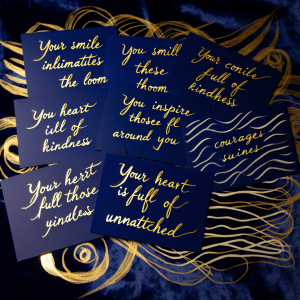 Your smile
inlimatites
the loom
You smill
these
thoom
Your conile
full of
kindness
You heart
iull of
kindness
You inspire
thosee fl
around you
courages
suines
Your herrt
full those
yinaless
Your heart
is full of
unnattched